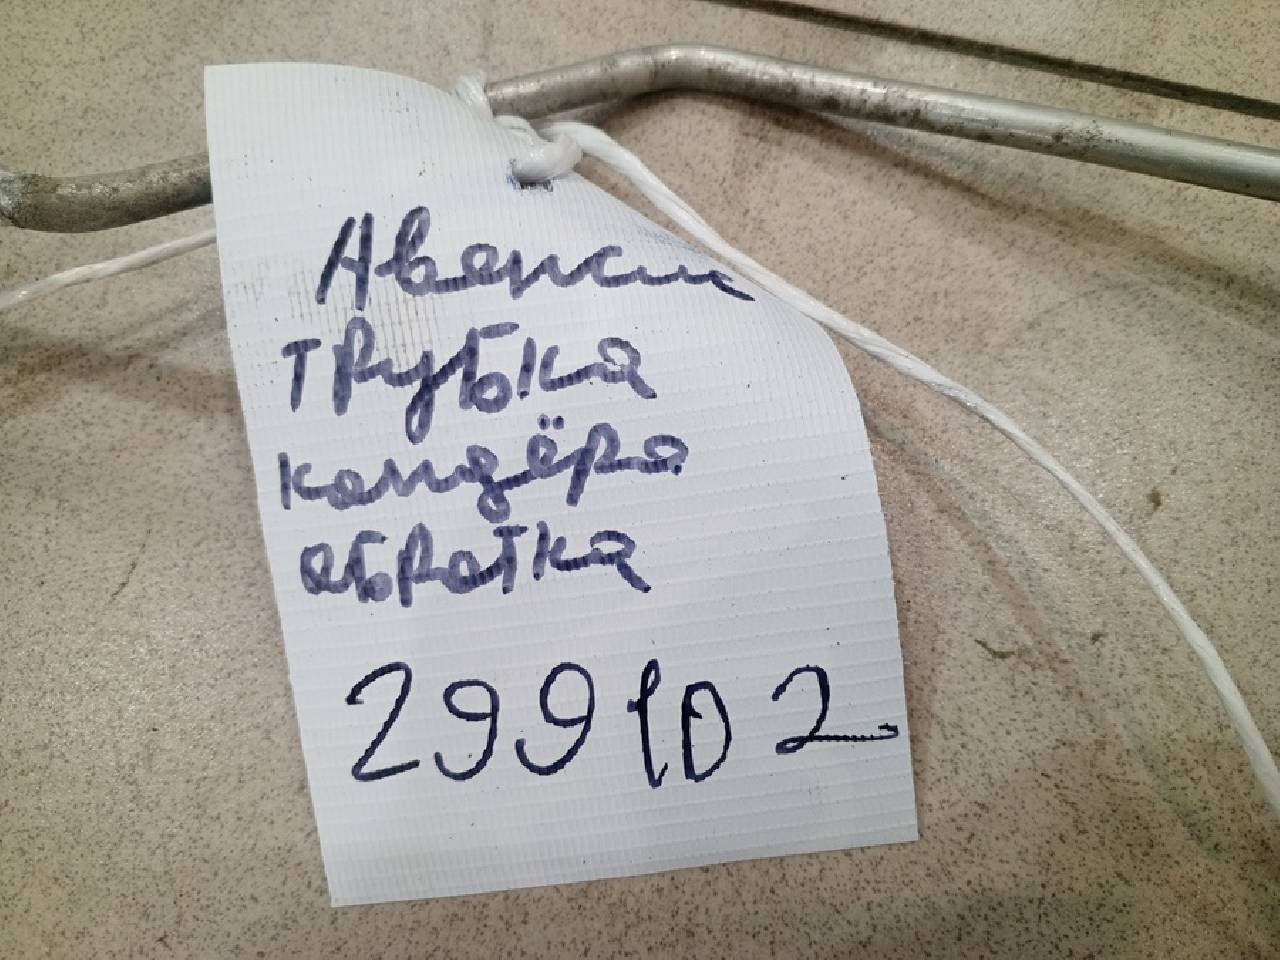 Авенсис
трубка
кондёра
обратка
299102